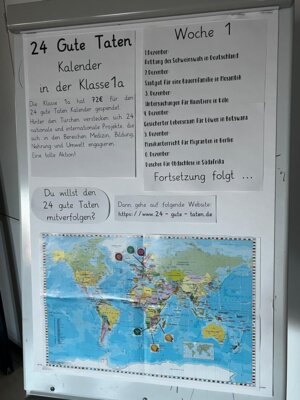 24 Gute Taten
Kalender
in der Klasse 1a
Die Klasse 1a hat 72€ für den
24 gute Taten Kalender gespendet.
Hinter den Türchen verstecken sich 24
nationale und internationale Projekte, die
sich in den Bereichen Medizin, Bildung,
Nahrung und Umwelt engagieren.
Eine tolle Aktion!
Woche 1
1.Dezember:
Rettung des Schweinswals in Deutschland
2.Dezember:
Saatgut für eine Bauernfamilie in Mosambik
3. Dezember:
Untersuchungen für Haustiere in Köln
4. Dezember:
Gesicherter Lebensraum für Löwen in Botswana
5. Dezember:
Musikunterricht für Migranten in Berlin
6. Dezember:
Duschen für Obdachlose in Südafrika
Fortsetzung folgt ...
Du willst den
24 gute Taten
mitverfolgen?
Dann gehe auf folgende Website:
https://www.24-gute-taten.de